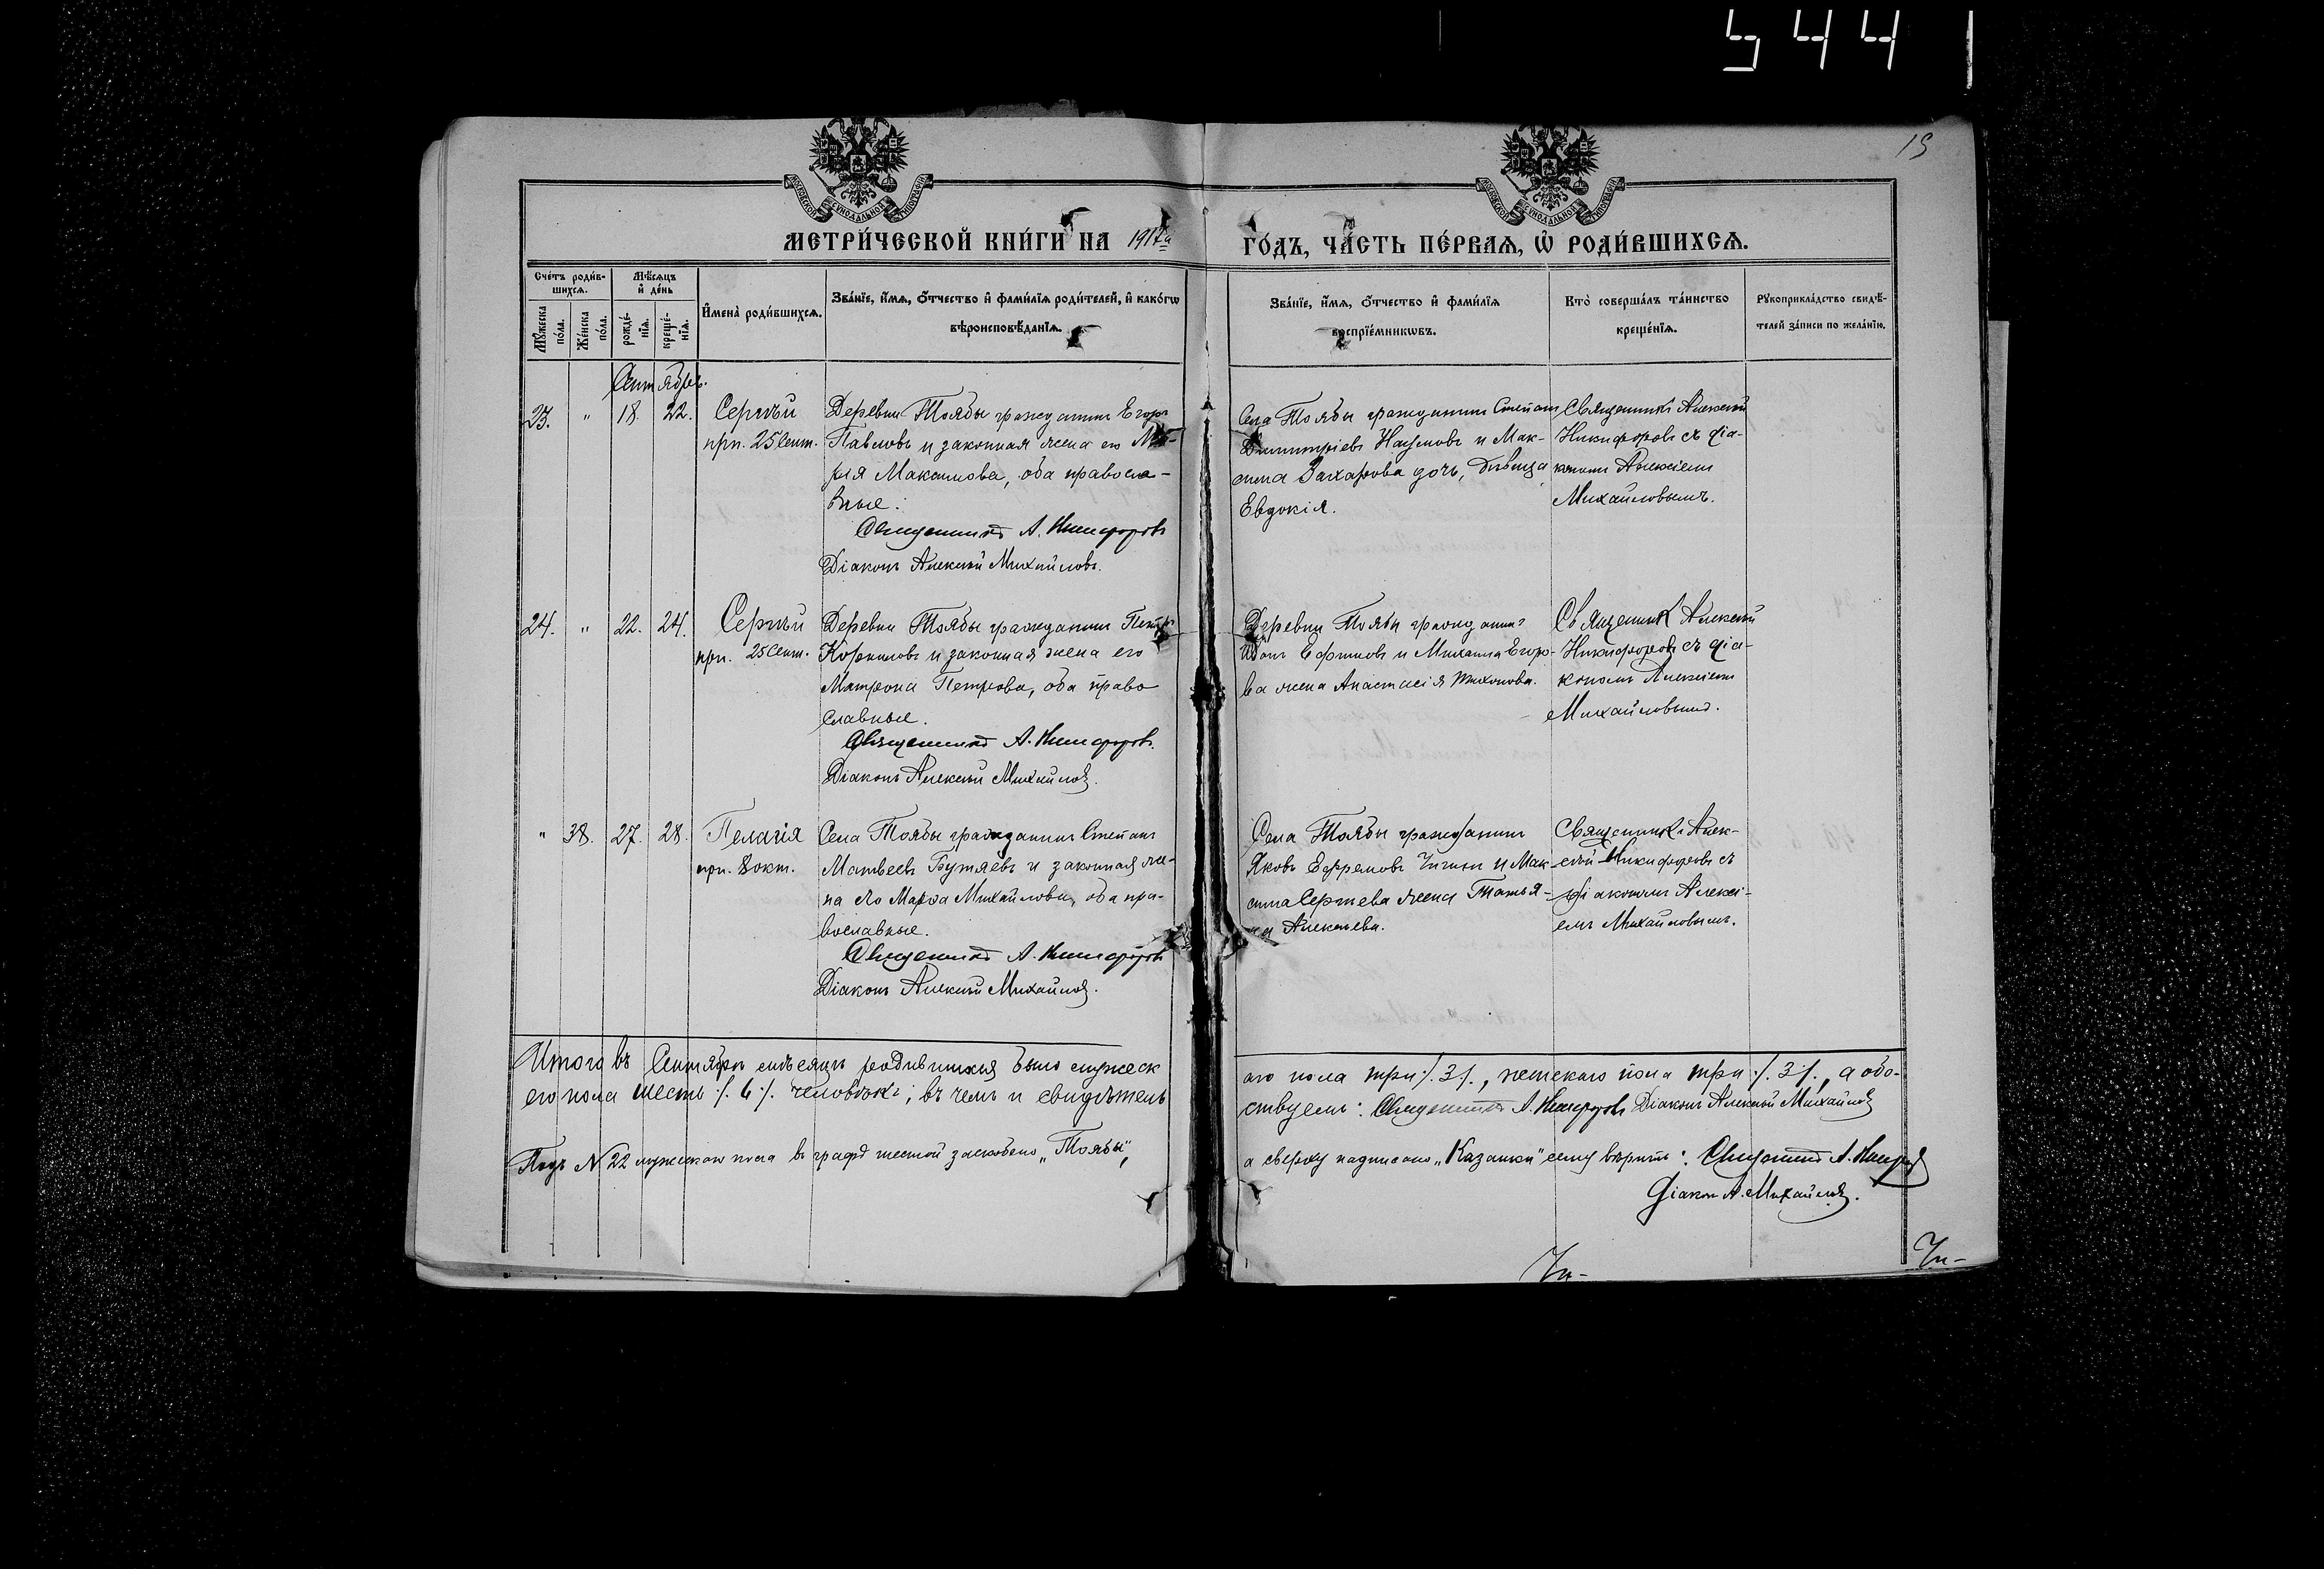 544
19
МОСКОВСКОЙ СѴНОДАЛЬНОЙ ТИПОГРАФІИ
МОСКОВСКОЙ СѴНОДАЛЬНОЙ ТИПОГРАФІИ
МЕТРИ́ЧЕСКОЙ КНИ́ГИ НА 1917й
ГО́ДЪ, ЧА́СТЬ ПЕ́РВАѦ, Ѽ РОДИ́ВШИХСѦ.
Сче́тъ роди́в-
шихсѧ.
Мѣ́сѧцъ
и҆ де́нь
Мꙋ́жеска
по́ла.
Же́нска
по́ла.
рожде́-
нїѧ.
креще́-
нїѧ.
И҆мена̀ роди́вшихсѧ.
Зва́нїе, и҆́мѧ, ѻ҆́тчество и҆ фамилїѧ роди́телей, и҆ како́гѡ
вѣроисповѣ́данїѧ.
Зва́нїе, и҆́мѧ, ѻ҆́тчество и҆ фами́лїѧ
воспрїе́мникѡвъ.
Кто̀ соверша́лъ та́инство
креще́нїѧ.
Рꙋкоприкла́дство свидѣ́-
телей за́писи по жела́нїю.
Сентябрь.
23. " 18. 22. Сергѣй
прп. 25 Сент.
Деревни Тоябы гражданинъ Егоръ
Павловъ и законная жена его Ма-
рія Максимова, оба правосла-
вные.
Священникъ А. Никифоровъ
Діаконъ Алексѣй Михайловъ.
Села Тоябы гражданинъ Степанъ
Димитріевъ Наумовъ и Мак-
сима Захарова дочь, дѣвица
Евдокія.
Священникъ Алексѣй
Никифоровъ съ діа-
кономъ Алексіемъ
Михайловымъ.
24. " 22. 24. Сергѣй
прп. 25 Сент.
Деревни Тоябы гражданинъ Петръ
Корниловъ и законная жена его
Матрона Петрова, оба право
славные.
Священникъ А. Никифоровъ.
Діаконъ Алексѣй Михайловъ.
Деревни Тоябы гражданинъ
Иванъ Ефимовъ и Михаила Егоро-
ва жена Анастасія Тихонова.
Священникъ Алексѣй
Никифоровъ съ діа-
кономъ Алексіемъ
Михайловымъ.
" 38. 27. 28. Пелагія
прп. 8 окт.
Села Тоябы гражданинъ Степанъ
Матвеевъ Бутяевъ и законная же-
на его Марѳа Михайлова, оба пра-
вославные.
Священникъ А. Никифоровъ
Діаконъ Алексѣй Михайловъ.
Села Тоябы гражданинъ
Яковъ Ефремовъ и Мак-
сима Сергѣева жена Татья-
на Алексѣева.
Священникъ Алек-
сѣй Никифоровъ съ
діакономъ Алексі-
емъ Михайловымъ.
Итого въ Сентябрѣ мѣсяцѣ родившихся было мужеск
ого пола три /. 3 /., женскаго пола три /. 3 /., а обо-
его пола шесть /. 6 /. человѣкъ; въ чемъ и свидѣтель
ствуемъ: Священникъ А. Никифоровъ Діаконъ Алексѣй Михайловъ
Подъ № 22 мужскаго пола въ графѣ шестой заскоблено „Тоябы",
а сверху надписано „Казанки" сему вѣрить: Священникъ А. Никифоровъ
Діаконъ А. Михайловъ.